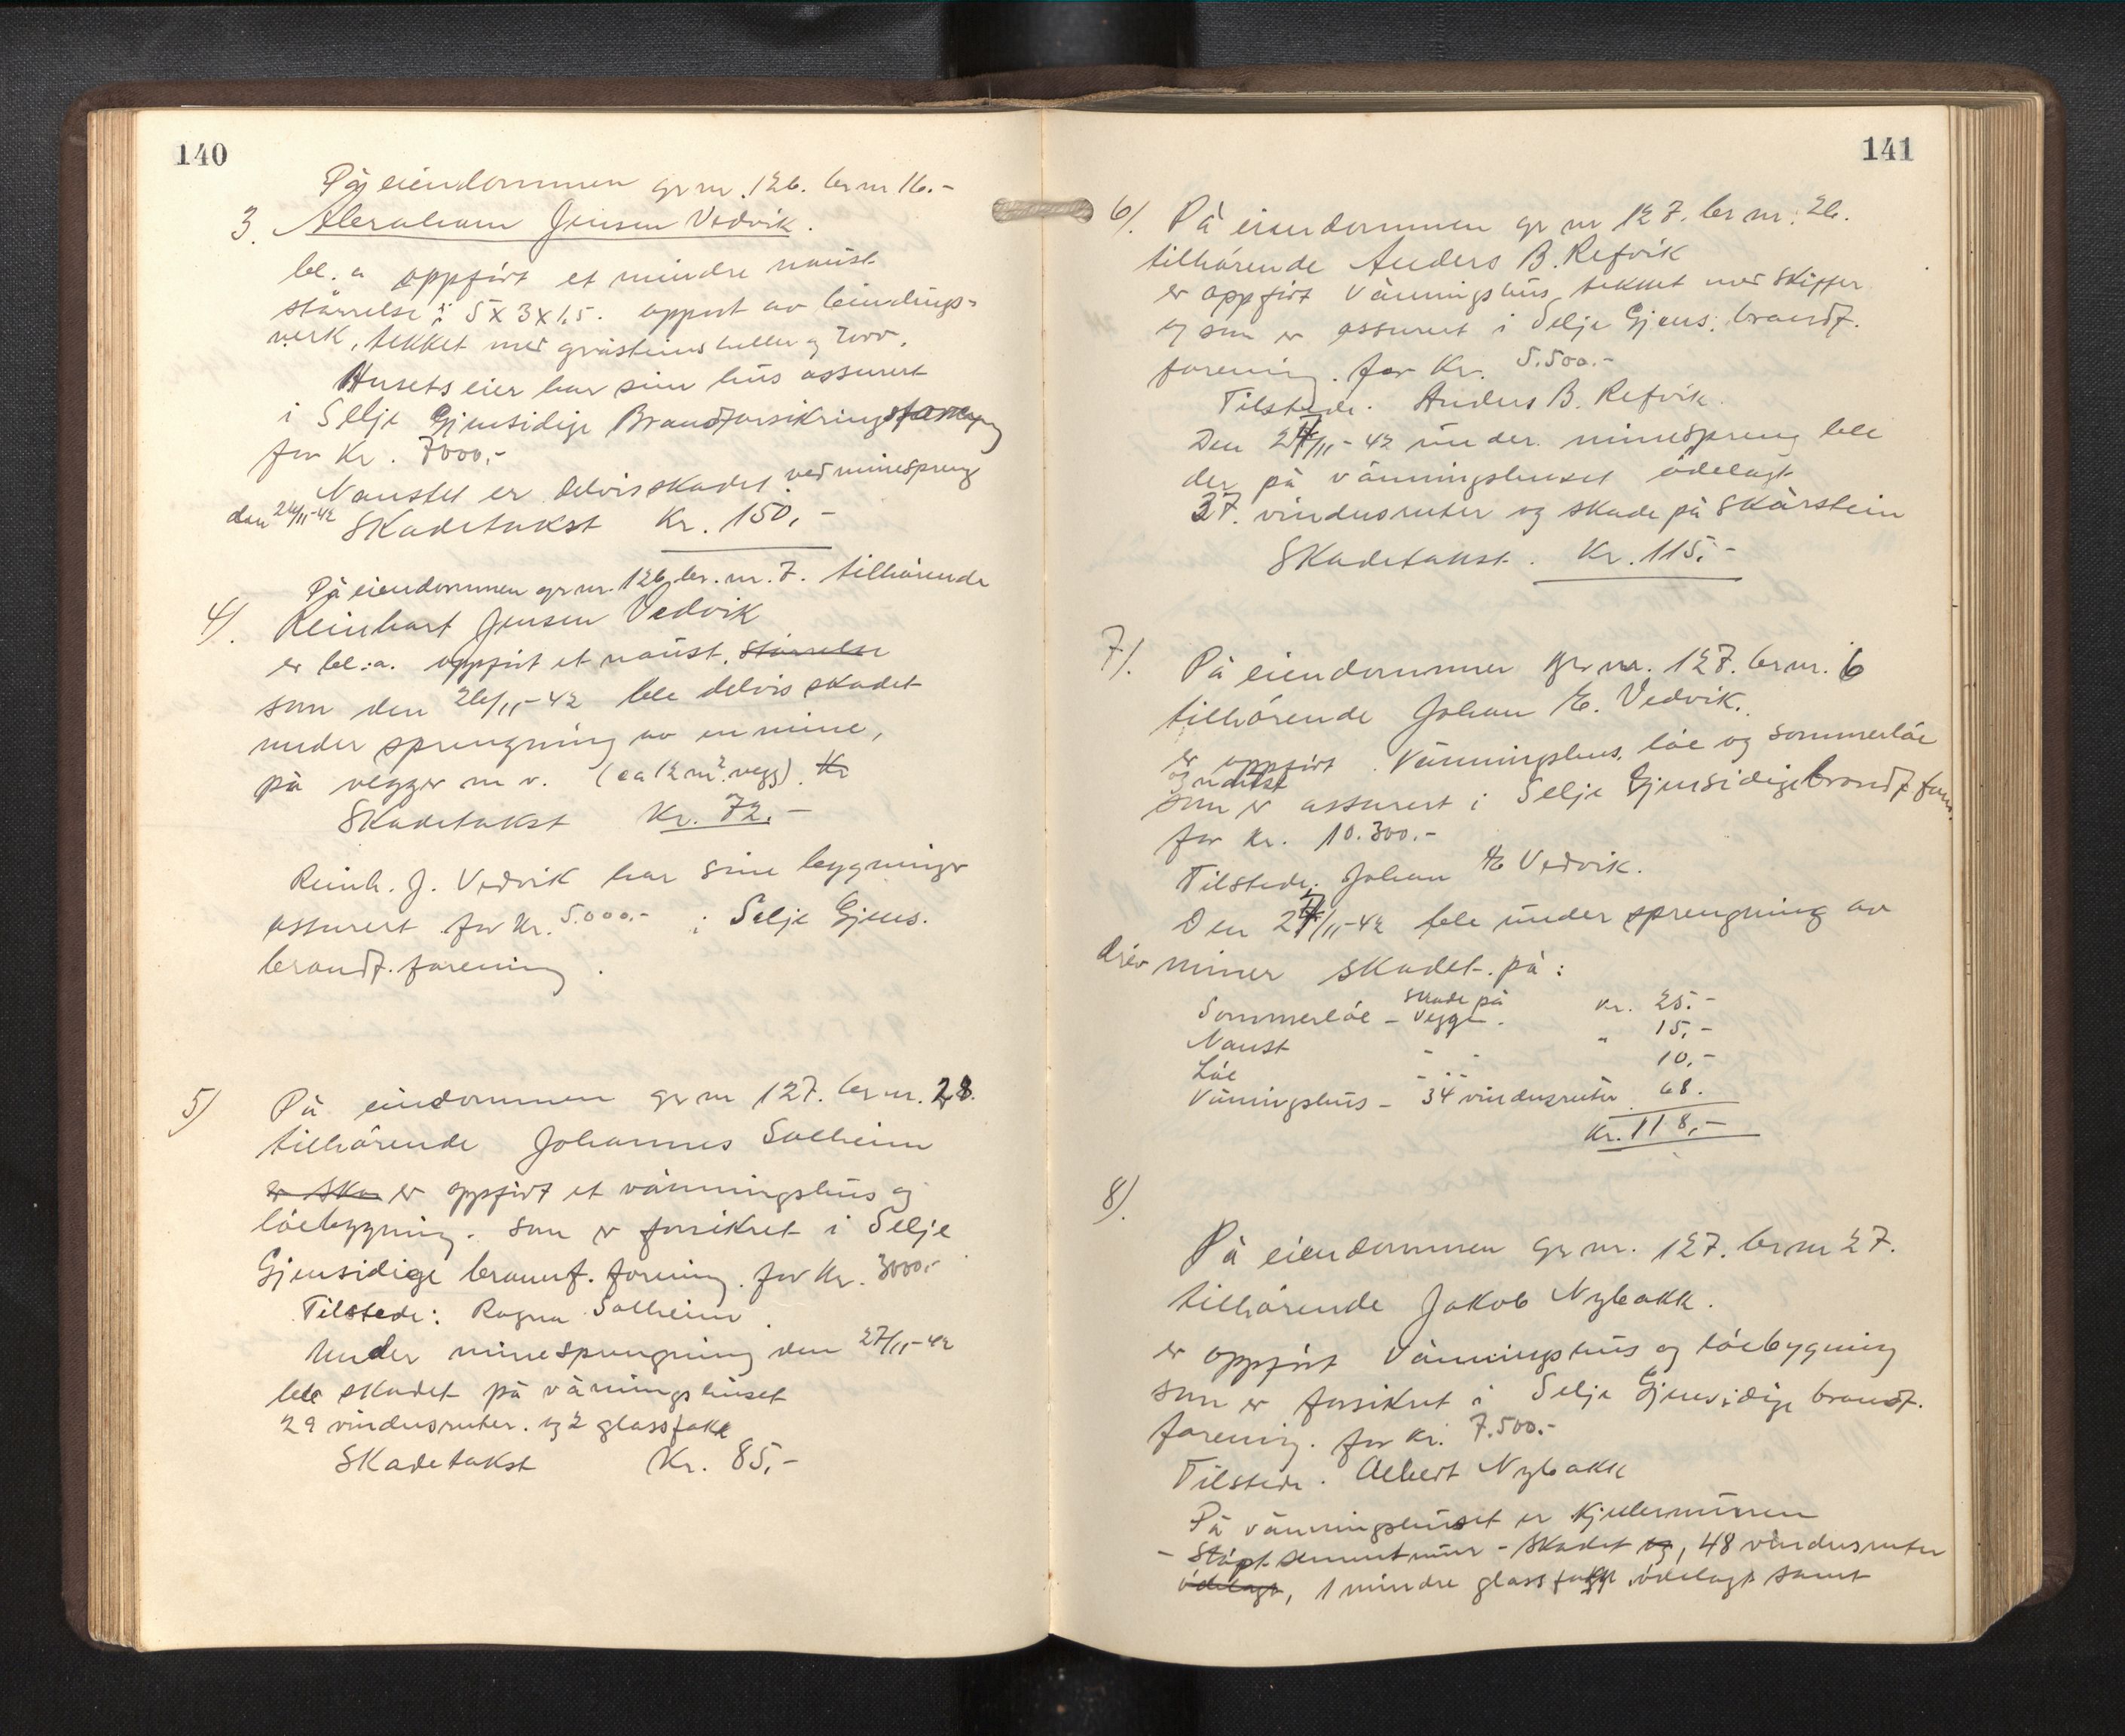 140
På eiendommen gr nr. 126. br nr 16.-
3. Abraham Jensen Vedvik.
bl. a oppført et mindre naust
størrelse: 5 x 3 x 1,5. oppørt av bindings-
verk, tekket med gråsteinsheller og torv.
Husets eier har sin hus assurert
i Selje Gjensidige Brandforsikringsforening
for Kr. 7000,-
Naustet er delvis skadet ved minespreng
den 26/11-42 Skadetakst Kr. 150,-
På eiendommen gr nr. 126 br. nr. 7. tilhørende
4). Reinhart Jensen Vedvik
er bl.a. oppført et naust. størrelse
som den 26/11-42 ble delvis skadet
under sprengning av en mine,
på vegger m v. (ca 12 m². vegg). Kr
Skadetakst Kr. 72.-
Reinh. J. Vedvik har sine bygninger
assurert for Kr. 5.000.- i Selje Gjens.
brandf. forening.
5) På eiendommen gr nr 127. br nr. 28.
tilhørende Johannes Solheim
er ska er oppført et våningshus og
løebygning. som er forsikret i Selje
Gjensidige brannf. forening. for Kr. 3000.-
Tilstede: Ragna Solheim.
Under minesprengning den 27/11-42
ble skadet på våningshuset
29 vindusruter. og 2 glasstakk
Skadetakst Kr. 85,-
141
6). På eiendommen gr nr 127. br nr. 26.
tilhørende Anders B. Refvik
er oppført Våningshus, tekket med skiffer
og som er assurert i Selje Gjens. brandf.
forening. for Kr. 5.500.-
Tilstede. Anders B. Refvik.
Den 27/11-42 under minespreng ble
der på våningshuset ødelagt
27. vindusruter og skade på skårstein
Skadetakst. Kr. 115.-
7). På eiendommen gr nr. 127. br nr. 6
tilhørende Johan E. Vedvik.
er oppført Våningshus, løe og sommerløe
og naust
som er assurert i Selje Gjensidige brandf for.
for Kr. 10.300.-
Tilstede: Johan E Vedvik.
Den 27/11-42 ble under sprengning av
driv miner skadet på:
Sommerløe - skade på Vegge. Kr. 25.-
Naust - - " 15,-
Løe - .. - 10,-
Våningshus - 34 vindusruter 68.
Kr. 118,-
8).
På eiendommen gr nr. 127. br nr 27.
tilhørende Jakob Nybakk.
er oppført Våningshus og løebygning
som er forsikret i Selje Gjensidige brandf.
forening. for Kr. 7.500.-
Tilstede. Albert Nybakk
På våningshuset er Kjellermuren
- Støpt sementmur - skadet og, 48 vindusruter
ødelagt, 1 mindre glass ødelagt samt